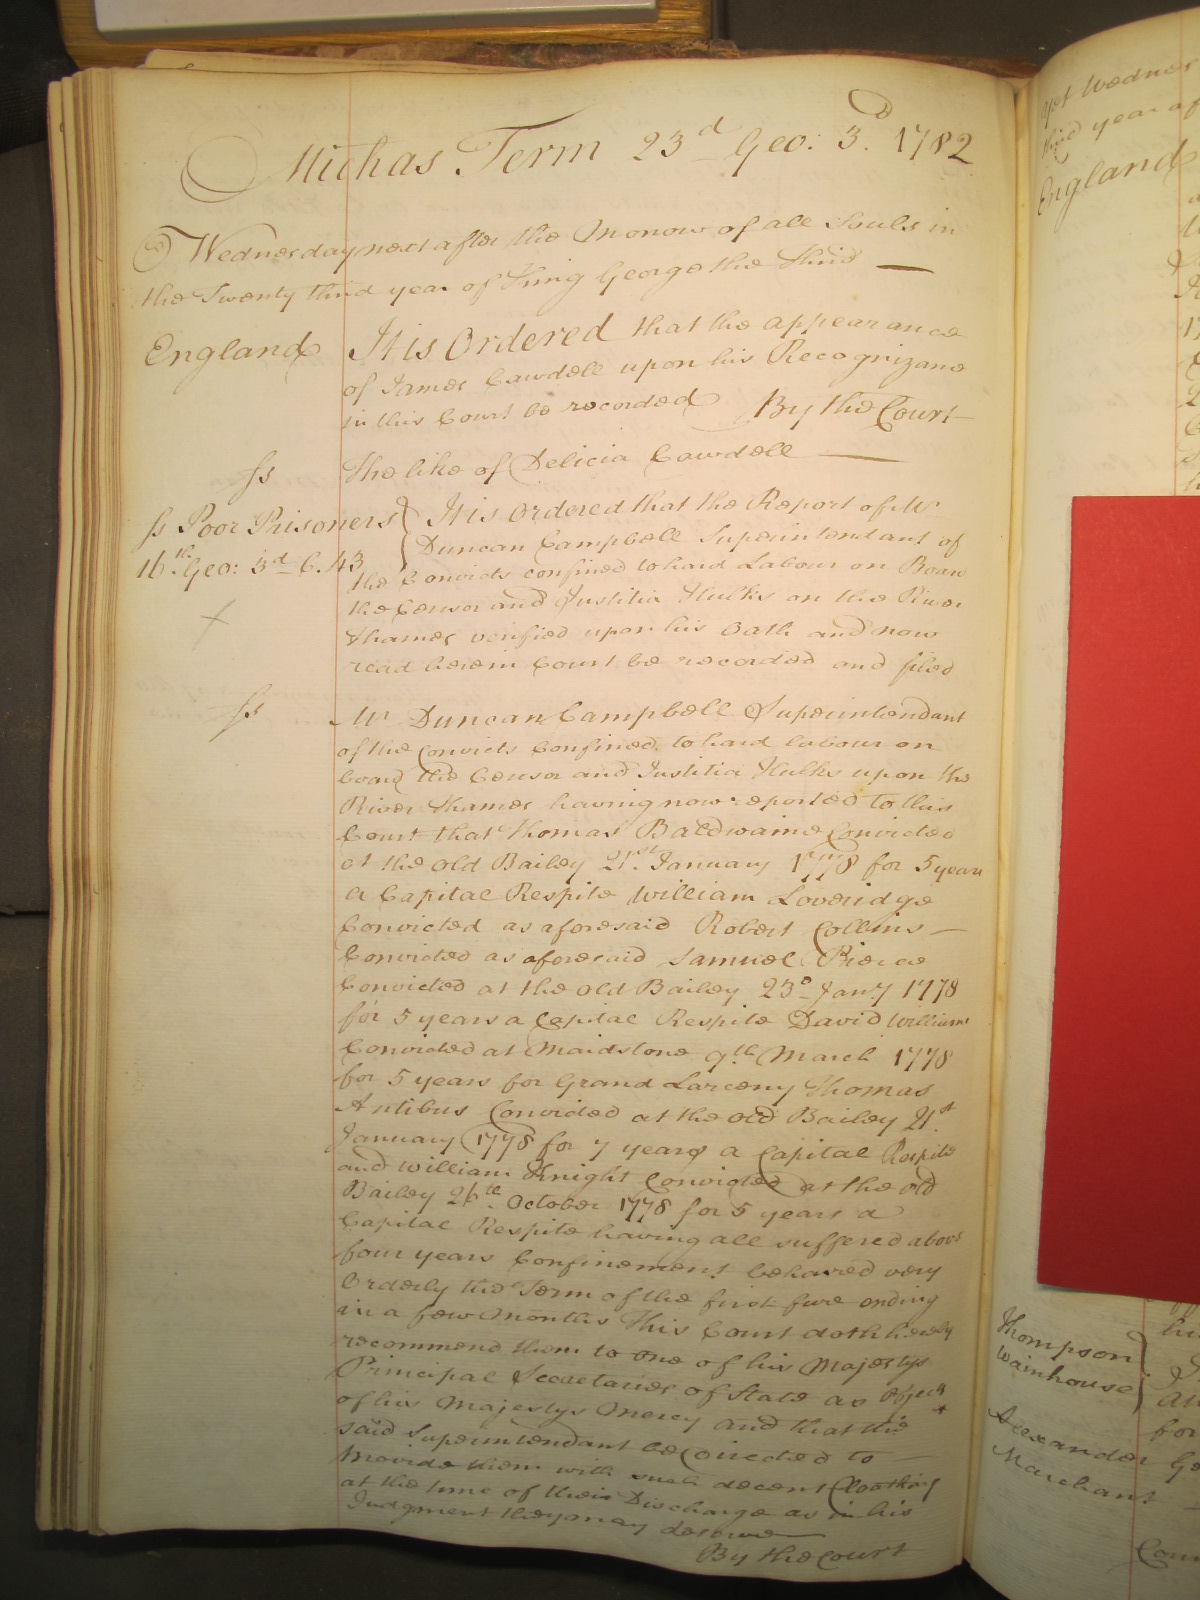 Michas Term 23d Geo: 3d. 1782
Wednesday next after the Morrow of all Souls in
the Twenty third year of King George the Third
England It is Ordered that the appearance
of James Cawdell upon his Recognizane
in this Court be recorded By the Court
Ss The like of Delicia Cawdell
Ss Poor Prisoners It is Ordered that the Report of Mr
Duncan Campbell Superintendant of
16th. Geo: 3d C. 43
the Convicts confined to hard Labour on Board
the Censor and Justitia Hulks on the River
Thames verified upon his Oath and now
read herein Court be recorded and filed
Ss Mr Duncan Campbell Superintendant
of the Convicts Confined to hard labour on
board the Censor and Justitia Hulks upon the
River Thames having now reported to this
Court that Thomas Baldwaine Convicted
at the Old Bailey 21st. January 1778 for 5 years
a Capital Respite William Loveridge
Convicted as aforesaid Robert Collins
Convicted as aforesaid Samuel Pierce
Convicted at the Old Bailey 23d Jany 1778
for 5 years a Capital Respite David Williams
Convicted at Maidstone 9th March 1778
for 5 years for Grand Larceny Thomas
Antibus Convicted at the Old Bailey 21st.
January 1778 for 7 years a Capital Respite
and William Knight Convicted at the Old
Bailey 26th October 1778 for 5 years a
Capital Respite having all suffered above
four years Confinement behaved very
Orderly the Term of the first five ending
in a few Months This Court doth hereby
recommend them to one of his Majestys
Principal Secretaries of State as Objects
of his Majestys Mercy and that the
said Superintendant be Directed to
provide them with such decent Cloathing
at the time of their Discharge as in his
Judgment they may deserve
By the Court
next Wednes
third year of
England
Thompson
Wainhouse
Alexander
Marchant